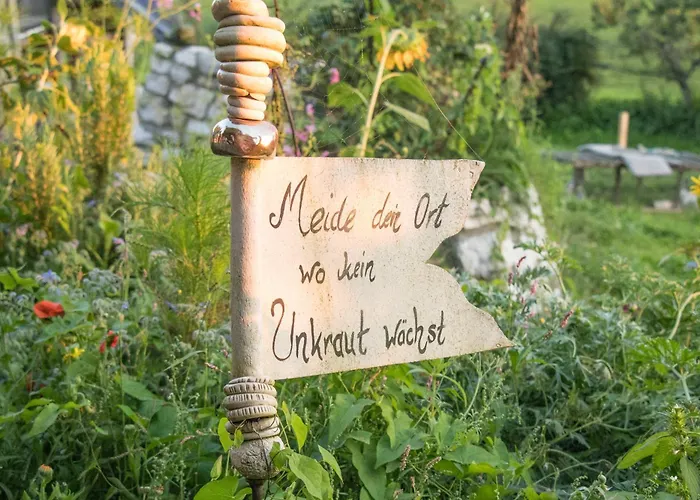 Meide den Ort
wo kein
Unkraut wächst